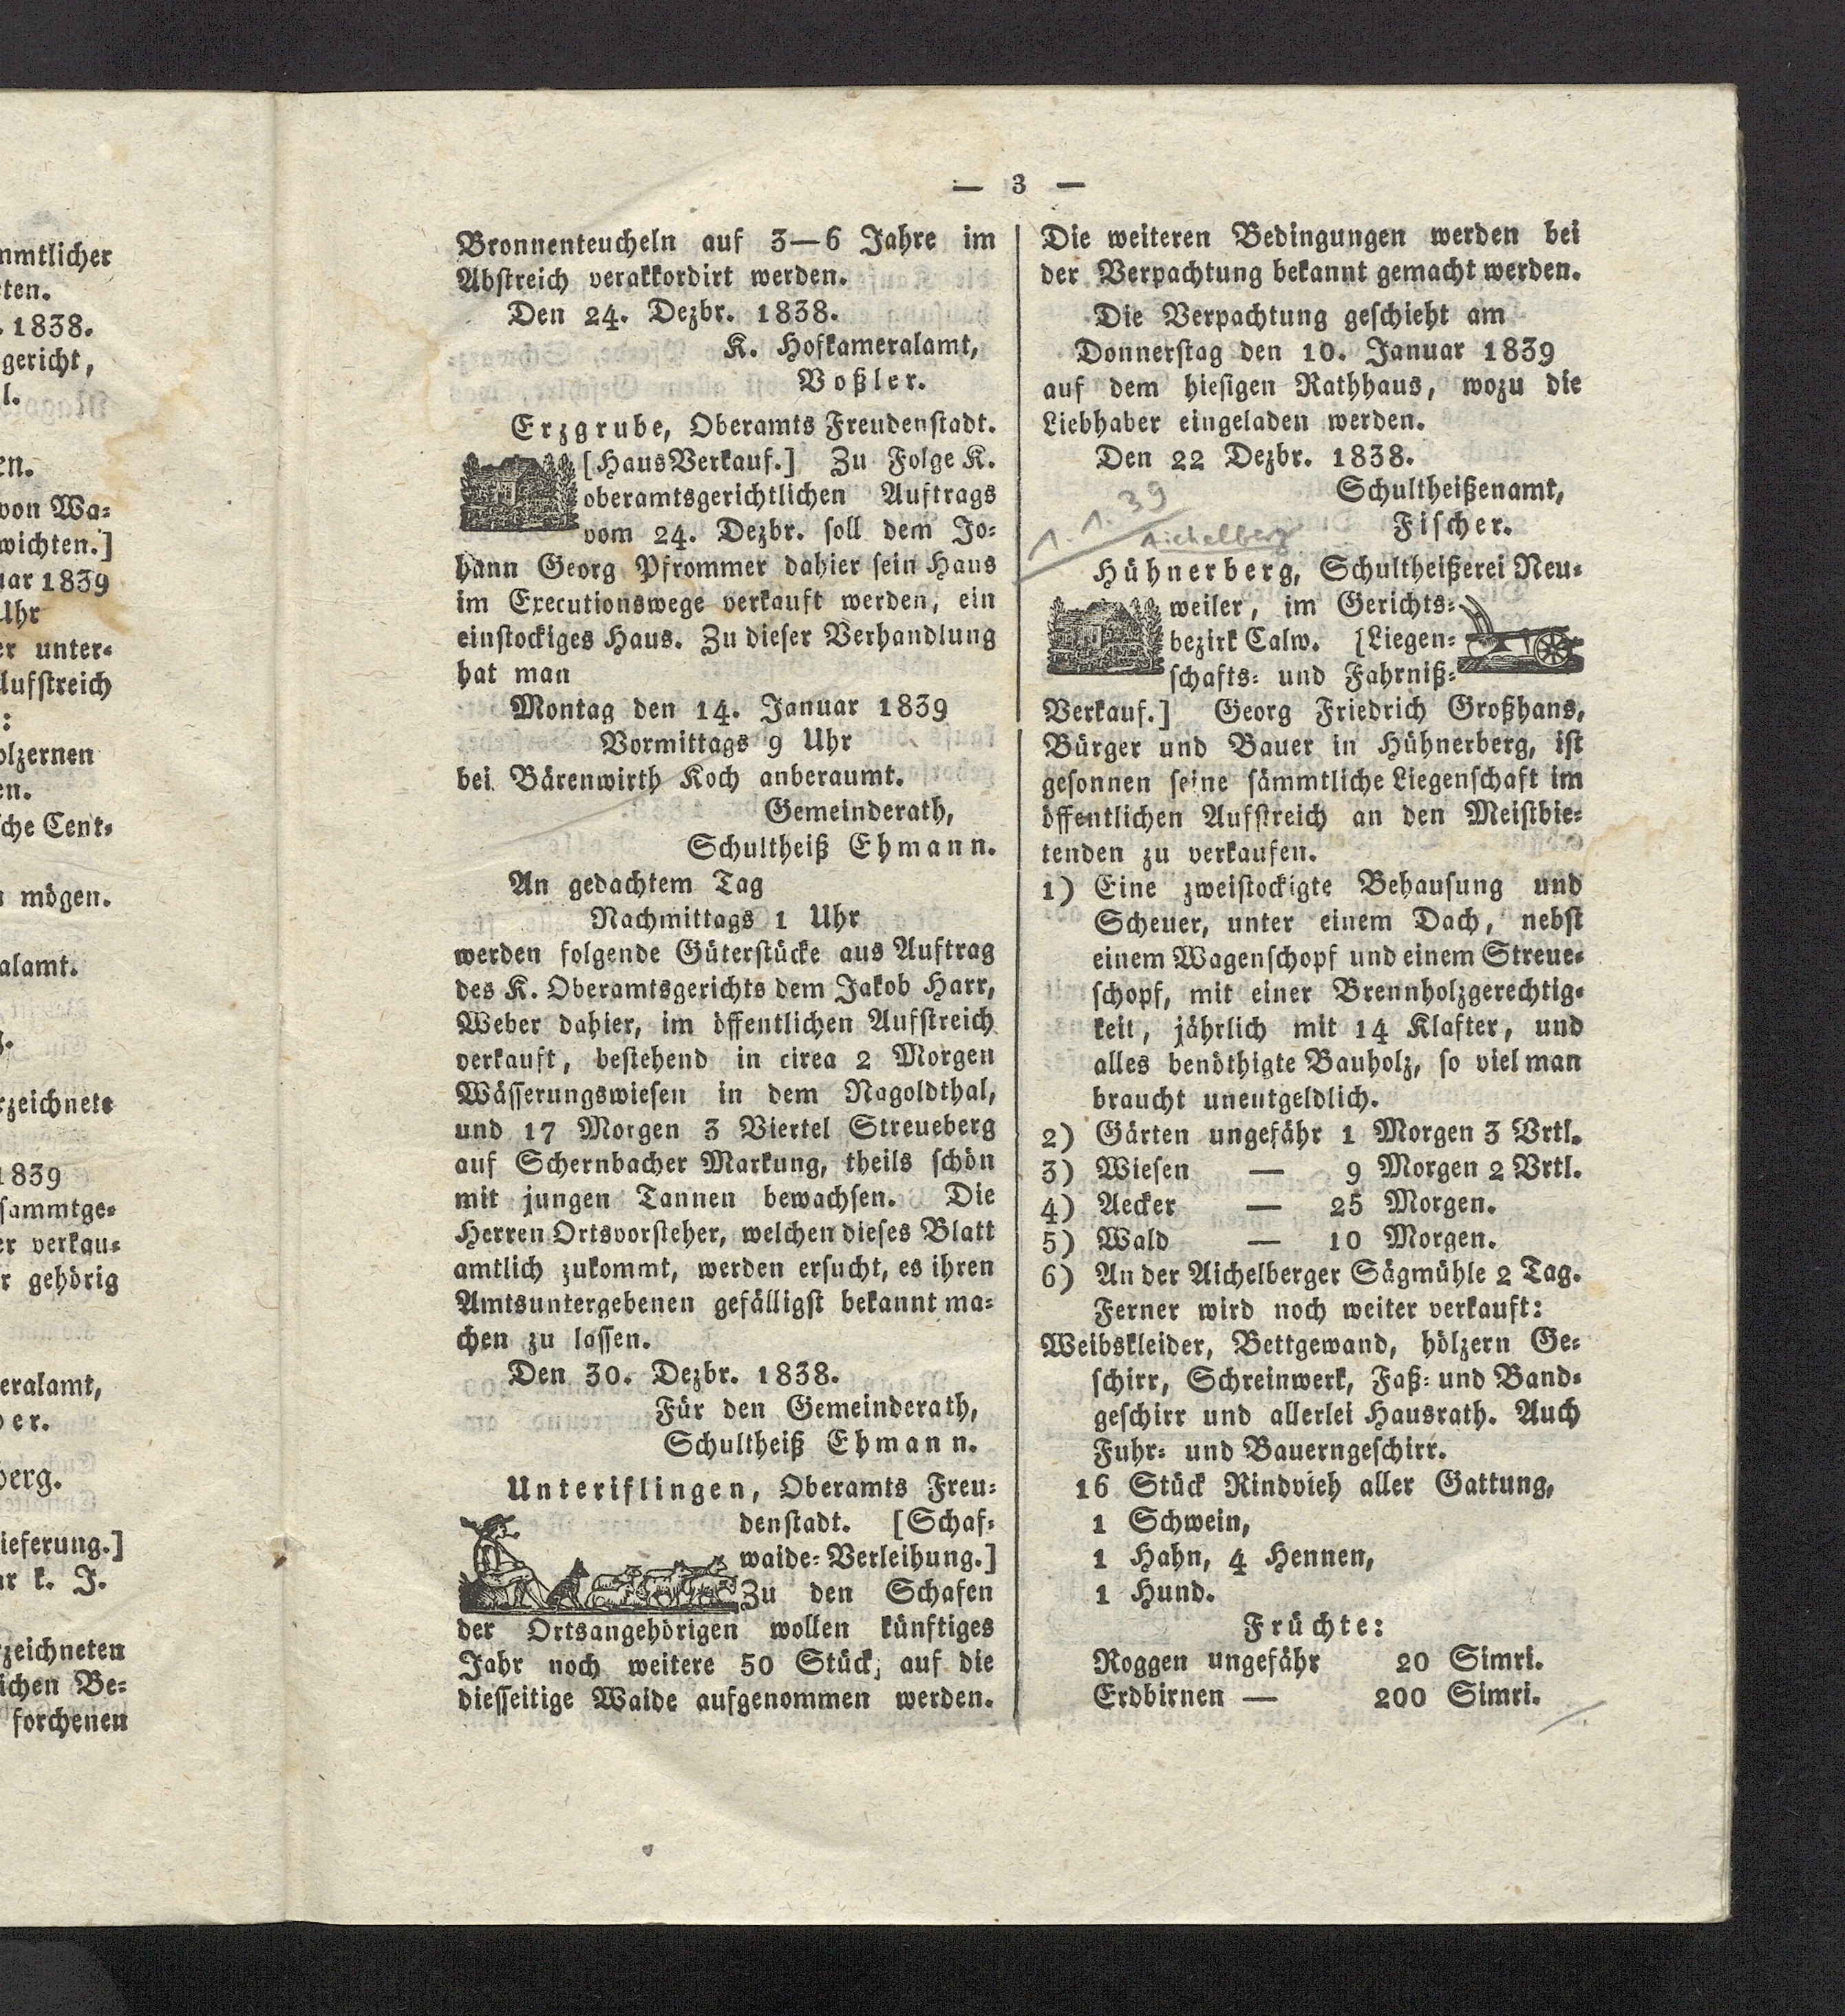 mmtlicher
ten.
. 1838.
gericht,
l.
en.
von Wa-
wichten.]
uar 1839
Uhr
er unter-
Aufstreich
:
olzernen
en.
sche Cent-
n mögen.
alamt.
g.
rzeichnete
1839
sammtge-
er verkau-
r gehörig
eralamt,
per.
berg.
ieferung.]
ar k. J.
rzeichneten
ichen Be-
forchenen
— 3 —
Bronnenteucheln auf 3—6 Jahre im
Abstreich verakkordirt werden.
Den 24. Dezbr. 1838.
K. Hofkameralamt,
Voßler.
Erzgrube, Oberamts Freudenstadt.
[HausVerkauf.] Zu Folge K.
oberamtsgerichtlichen Auftrags
vom 24. Dezbr. soll dem Jo-
hann Georg Pfrommer dahier sein Haus
im Executionswege verkauft werden, ein
einstockiges Haus. Zu dieser Verhandlung
hat man
Montag den 14. Januar 1839
Vormittags 9 Uhr
bei Bärenwirth Koch anberaumt.
Gemeinderath,
Schultheiß Ehmann.
An gedachtem Tag
Nachmittags 1 Uhr
werden folgende Güterstücke aus Auftrag
des K. Oberamtsgerichts dem Jakob Harr,
Weber dahier, im öffentlichen Aufstreich
verkauft, bestehend in cirea 2 Morgen
Wässerungswiesen in dem Nagoldthal,
und 17 Morgen 3 Viertel Streueberg
auf Schernbacher Markung, theils schön
mit jungen Tannen bewachsen. Die
Herren Ortsvorsteher, welchen dieses Blatt
amtlich zukommt, werden ersucht, es ihren
Amtsuntergebenen gefälligst bekannt ma-
chen zu lassen.
Den 30. Dezbr. 1838.
Für den Gemeinderath,
Schultheiß Ehmann.
Unteriflingen, Oberamts Freu-
denstadt. [Schaf-
waide-Verleihung.]
Zu den Schafen
der Ortsangehörigen wollen künftiges
Jahr noch weitere 50 Stück, auf die
diesseitige Waide aufgenommen werden.
Die weiteren Bedingungen werden bei
der Verpachtung bekannt gemacht werden.
Die Verpachtung geschieht am
Donnerstag den 10. Januar 1839
auf dem hiesigen Rathhaus, wozu die
Liebhaber eingeladen werden.
Den 22 Dezbr. 1838.
Schultheißenamt,
Fischer.
1. 1. 39
Aichelberg
Hühnerberg, Schultheißerei Neu-
weiler, im Gerichts-
bezirk Calw. [Liegen-
schafts- und Fahrniß-
Verkauf.] Georg Friedrich Großhans,
Bürger und Bauer in Hühnerberg, ist
gesonnen seine sämmtliche Liegenschaft im
öffentlichen Aufstreich an den Meistbie-
tenden zu verkaufen.
1) Eine zweistockigte Behausung und
Scheuer, unter einem Dach, nebst
einem Wagenschopf und einem Streue-
schopf, mit einer Brennholzgerechtig-
keit, jährlich mit 14 Klafter, und
alles benöthigte Bauholz, so viel man
braucht uneutgeldlich.
2) Gärten ungefähr 1 Morgen 3 Vrtl.
3) Wiesen — 9 Morgen 2 Vrtl.
4) Aecker — 25 Morgen.
5) Wald — 10 Morgen.
6) An der Aichelberger Sägmühle 2 Tag.
Ferner wird noch weiter verkauft:
Weibskleider, Bettgewand, hölzern Ge-
schirr, Schreinwerk, Faß- und Band-
geschirr und allerlei Hausrath. Auch
Fuhr- und Bauerngeschirr.
16 Stück Rindvieh aller Gattung,
1 Schwein,
1 Hahn, 4 Hennen,
1 Hund.
Früchte:
Roggen ungefähr 20 Simri.
Erdbirnen — 200 Simri.